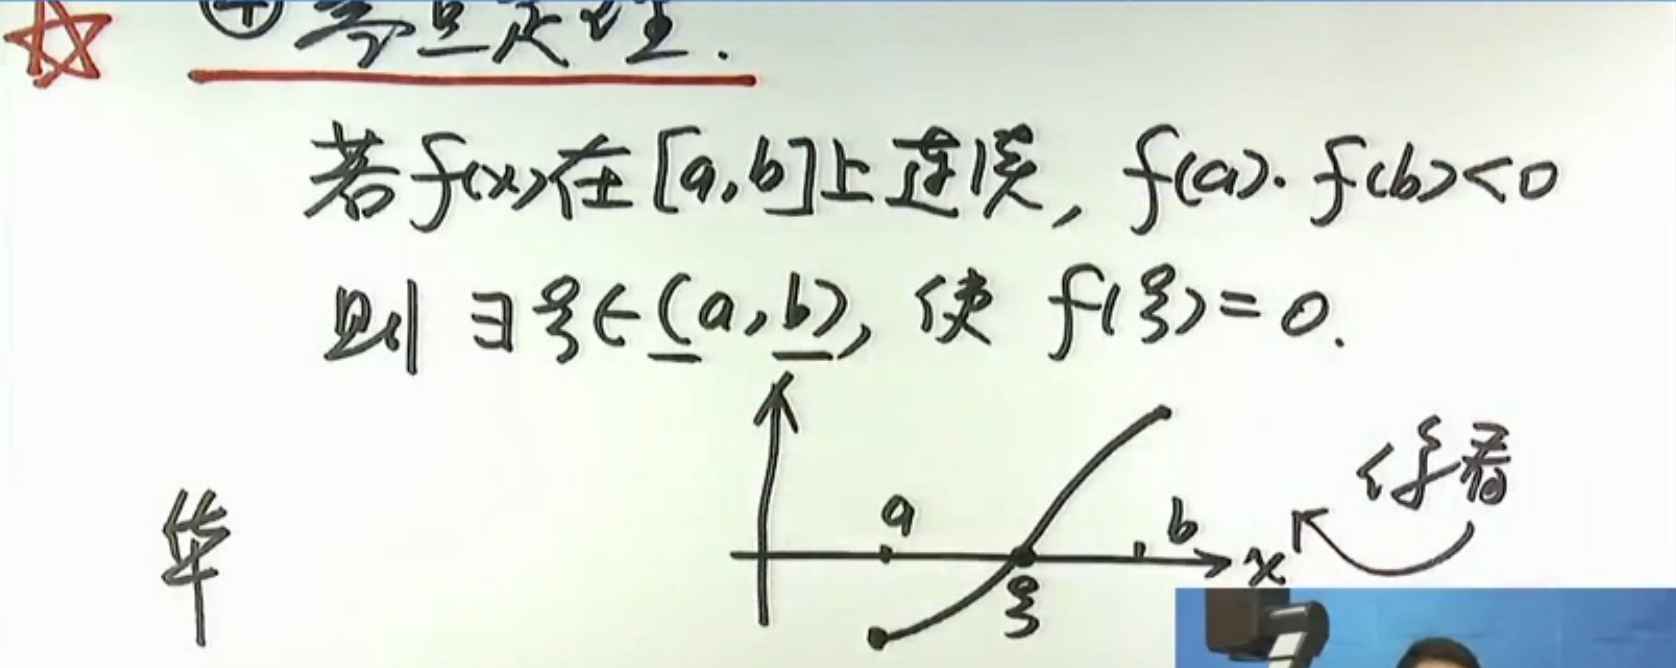 ④零点定理.
若f(x)在[a,b]上连续, f(a)·f(b)<0
则∃ξ∈(a,b), 使 f(ξ)=0.
a
b
x
ξ
华